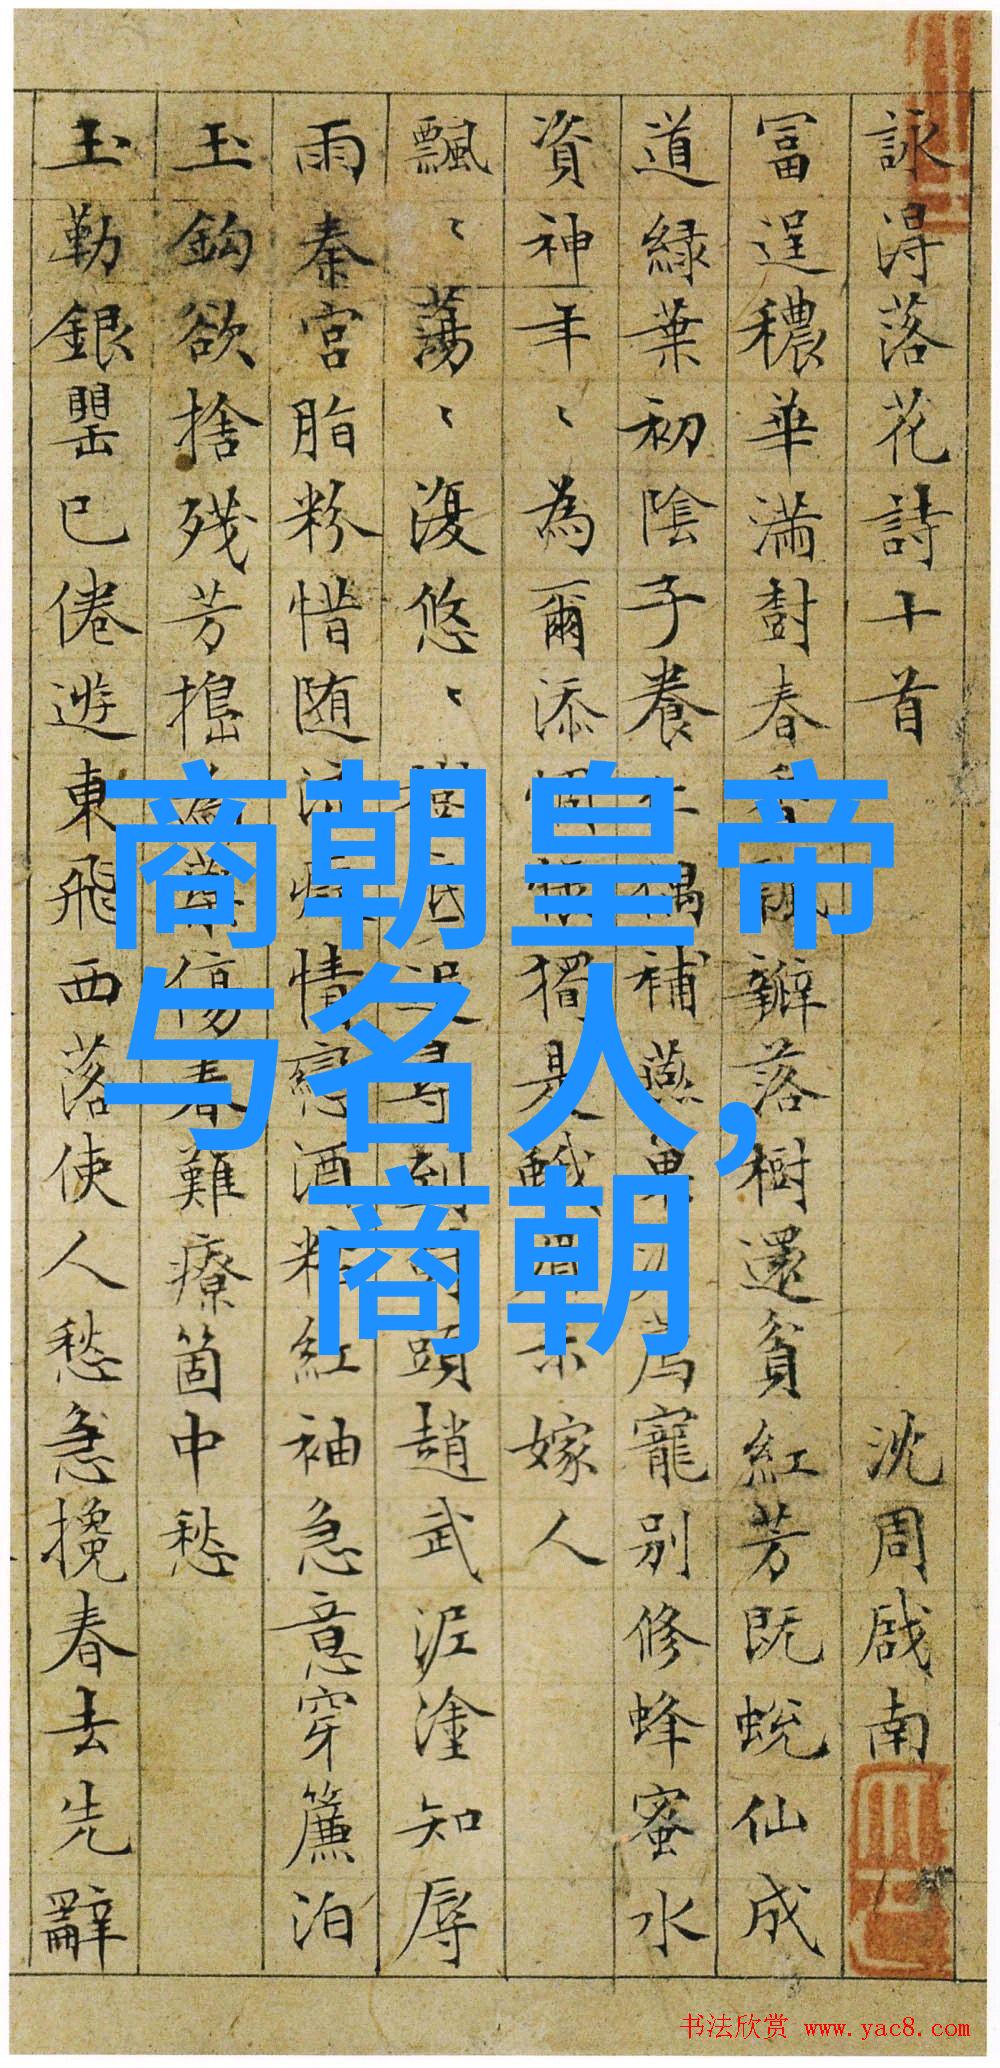 詠淂落花詩十首 沈周啟南
冨逞穠華滿樹春 瓣落樹還貧紅芳既蛻仙成
道緑葉初陰子養 偶補燕 寵別修蜂蜜水
資神年〻為爾添 獨是 嫁人
飄〻蕩〻復悠〻 到 頭趙武泥塗知辱
雨秦宮脂粉惜随 情戀酒粘紅袖急意穿簾泊
玉鈎欲捨殘芳搗 傷春難療箇中愁
玉勒銀罌已倦遊東飛西落使人愁急攙春去先辭
商朝皇帝
与名人,
商朝
书法欣赏 www.yac8.com